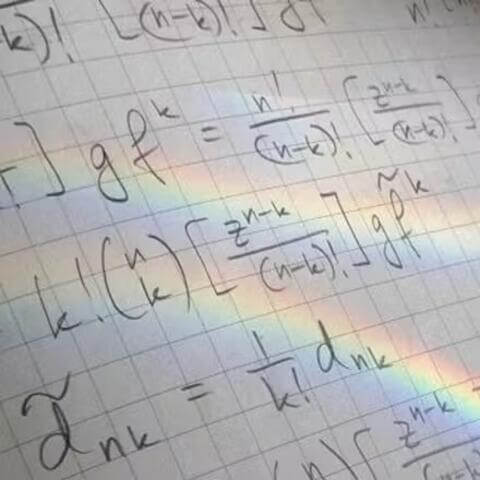 k)! [(n-k)!] gf n!
] gf^k = n!/(n-k)! [z^{n-k}/(n-k)!]
k! (n k) [z^{n-k}/(n-k)!] g\tilde{f}^k
\tilde{d}_{nk} = 1/k! d_{nk}
(n) [z^{n-k}/(n-k)